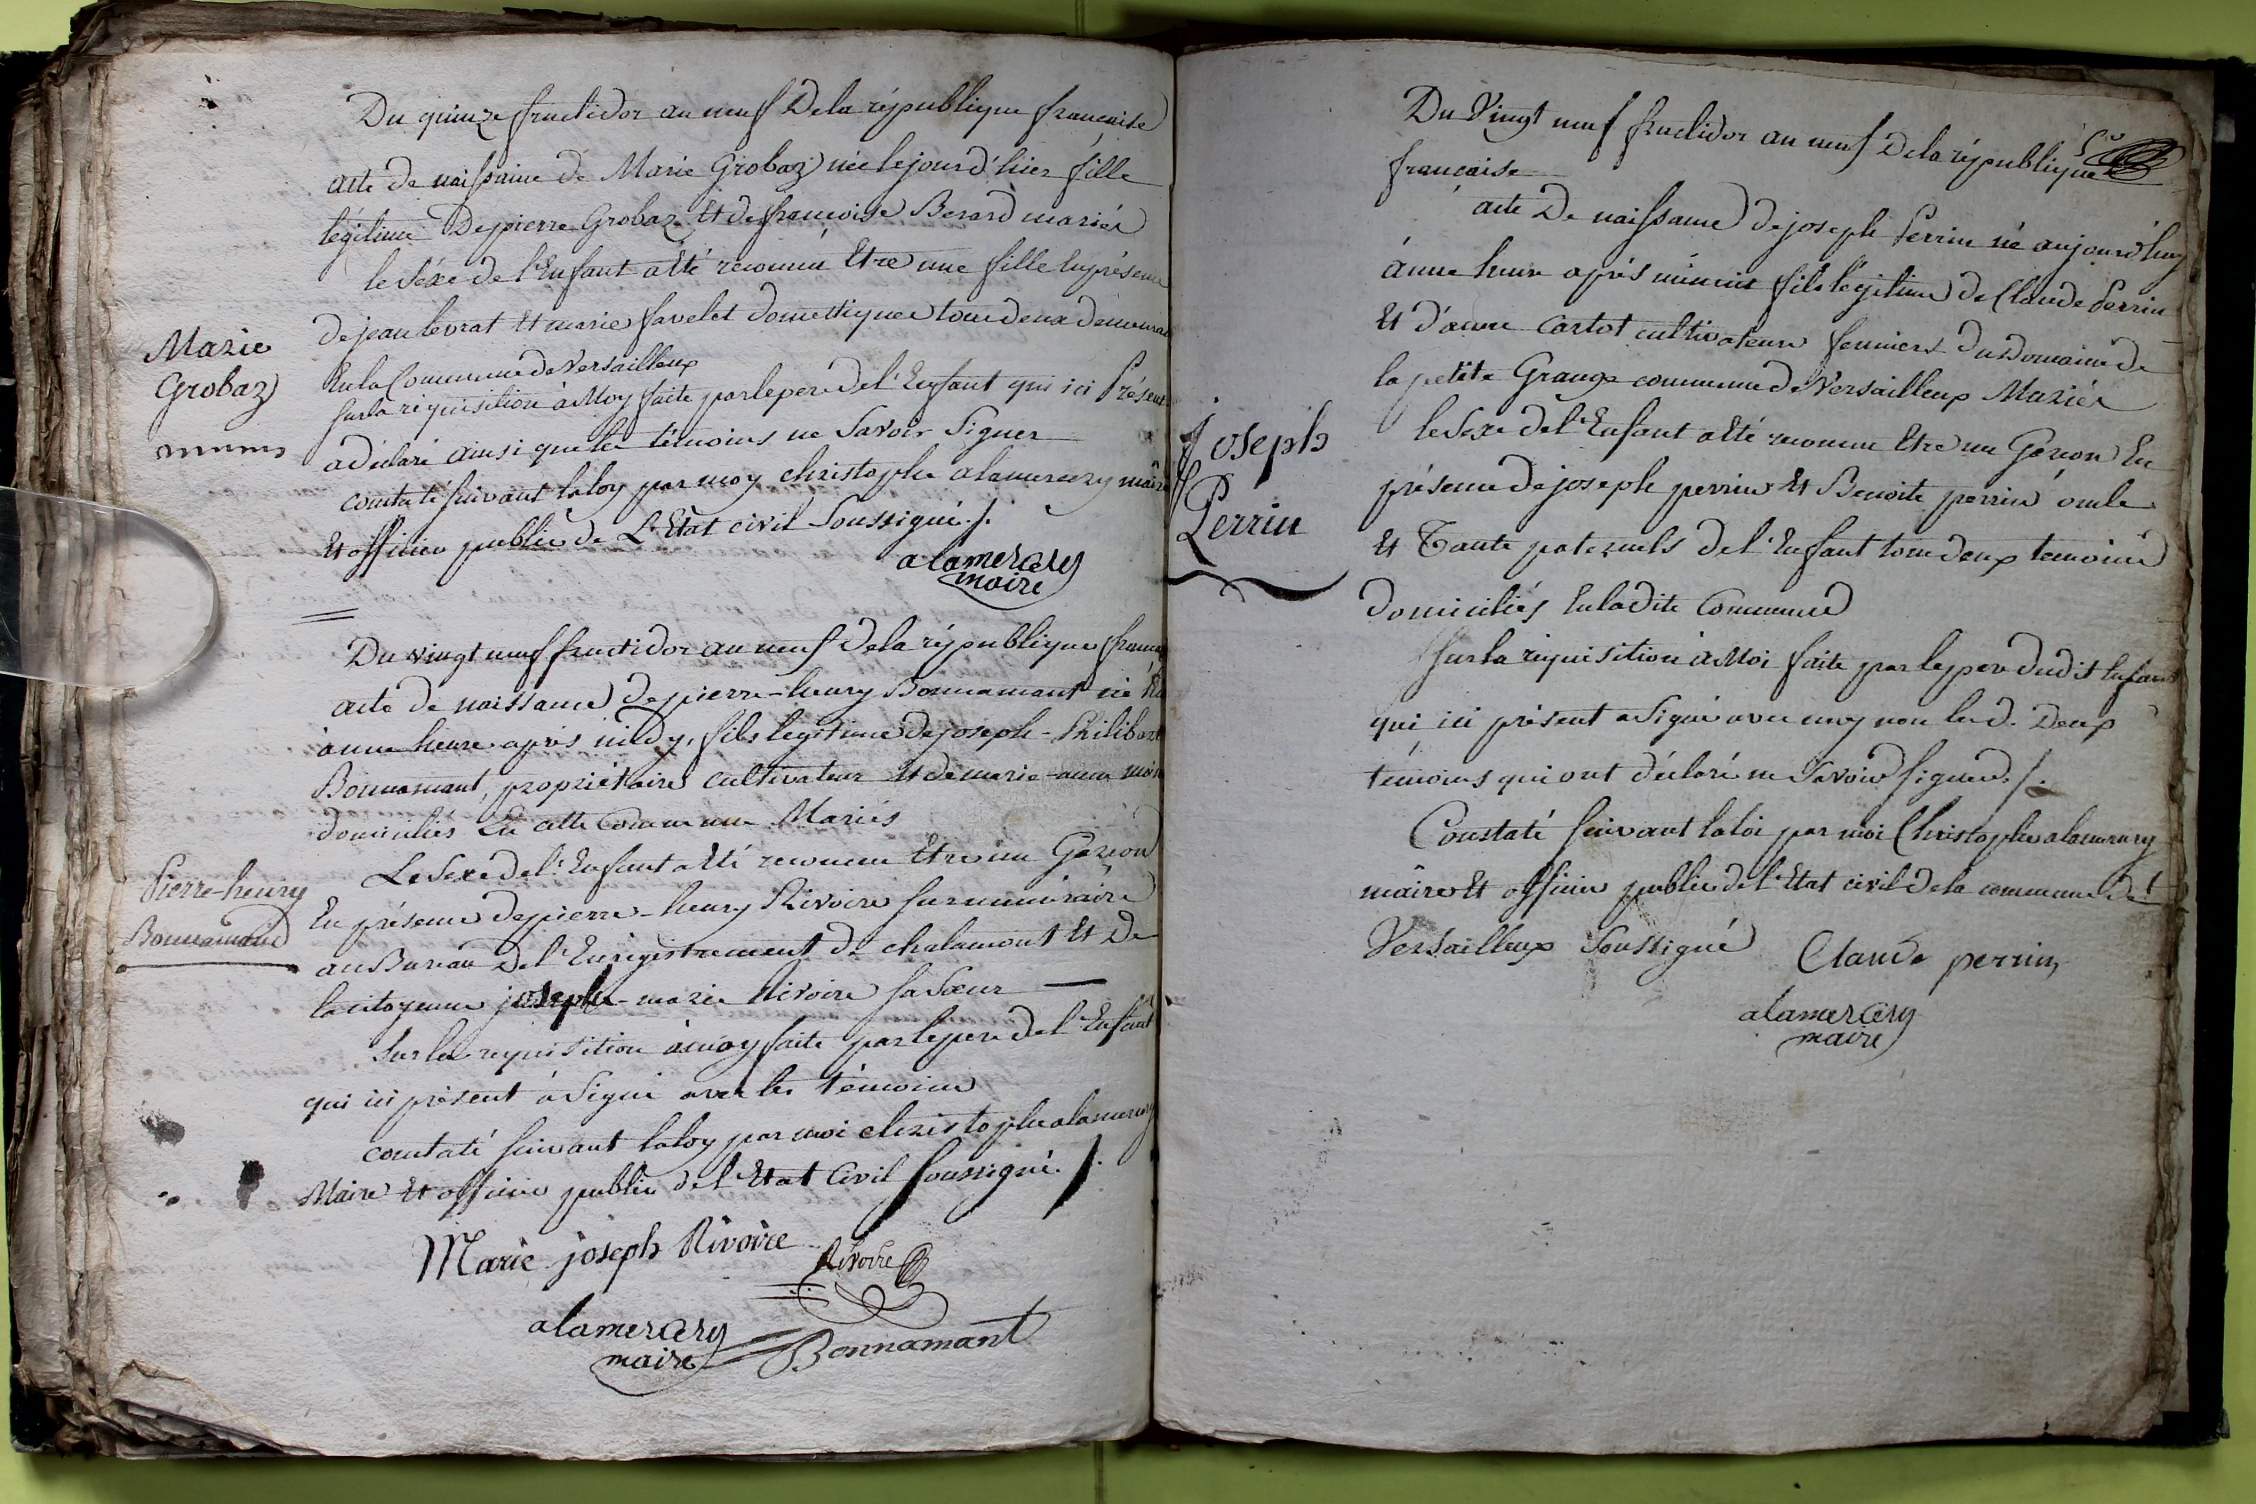 Du quinze fructidor an neuf De la république française
acte de naissance de Marie Grobaz née le jour d'hier fille
légitime De pierre Grobaz Et de françoise Berard mariés
le séxe de l'Enfant a été reconnu Etre une fille En présence
de jean levrat Et marie favelet domestiques tous deux demeurant
En la Commune de Versailleux
Marie
Grobaz
Sur la réquisition à Moy faite par le pere de l'Enfant qui ici Présent
a déclaré ainsi que les témoins ne Savoir Signer
constaté suivant la loy par moy christophe alamercery maire
Et officier public de L'Etat civil Soussigné ./.
alamercery
maire
Du vingt neuf fructidor an neuf De la république
acte de naissance De pierre-henry Bonnamant né
à une heure après midy, fils légitime de joseph-Philibert
Bonnamant, propriétaire cultivateur Et de marie-anne
domiciliés En cette Commune Mariés
Pierre-henry
Bonnamand
Le Sexe de l'Enfant a Eté reconnu Etre un Garçon
En présence de pierre-henry Rivoire surnuméraire
au Bureau De l'Enregistrement de chalamont Et De
la citoyenne joseph-marie Rivoire sa Sœur
Sur la requisition à moy faite par le pere de l'Enfant
qui ici présent a Signé avec les témoins
constaté suivant la loy par moi christophe alamercery
Maire Et officier public de l'Etat Civil soussigné ./.
Marie joseph Rivoire
Rivoire
alamercery
maire
Bonnamant
Du Vingt neuf fructidor an neuf De la république
française
acte De naissance de joseph Perrin né aujourd'huy
à une heure après minuit fils légitime de Claude Perrin
Et d'anne Cartot cultivateurs fermiers du Domaine de
la petite Grange commune de Versailleux Mariés
Joseph
Perrin
le Sexe de l'Enfant a Eté reconnu Etre un Garçon En
présence de joseph perrin Et Benoite perrin oncle
Et Tante paternels de l'Enfant tous deux temoins
domiciliés En la dite Commune
Sur la réquisition à Moi faite par le pere dudit Enfant
qui ici présent a Signé avec moy non les d. Deux
témoins qui ont déclaré ne Savoir signer ./.
Constaté suivant la loi par moi Christophe alamercery
maire Et officier public de l'Etat civil de la commune de
Versailleux Soussigné
Claude perrin
alamercery
maire